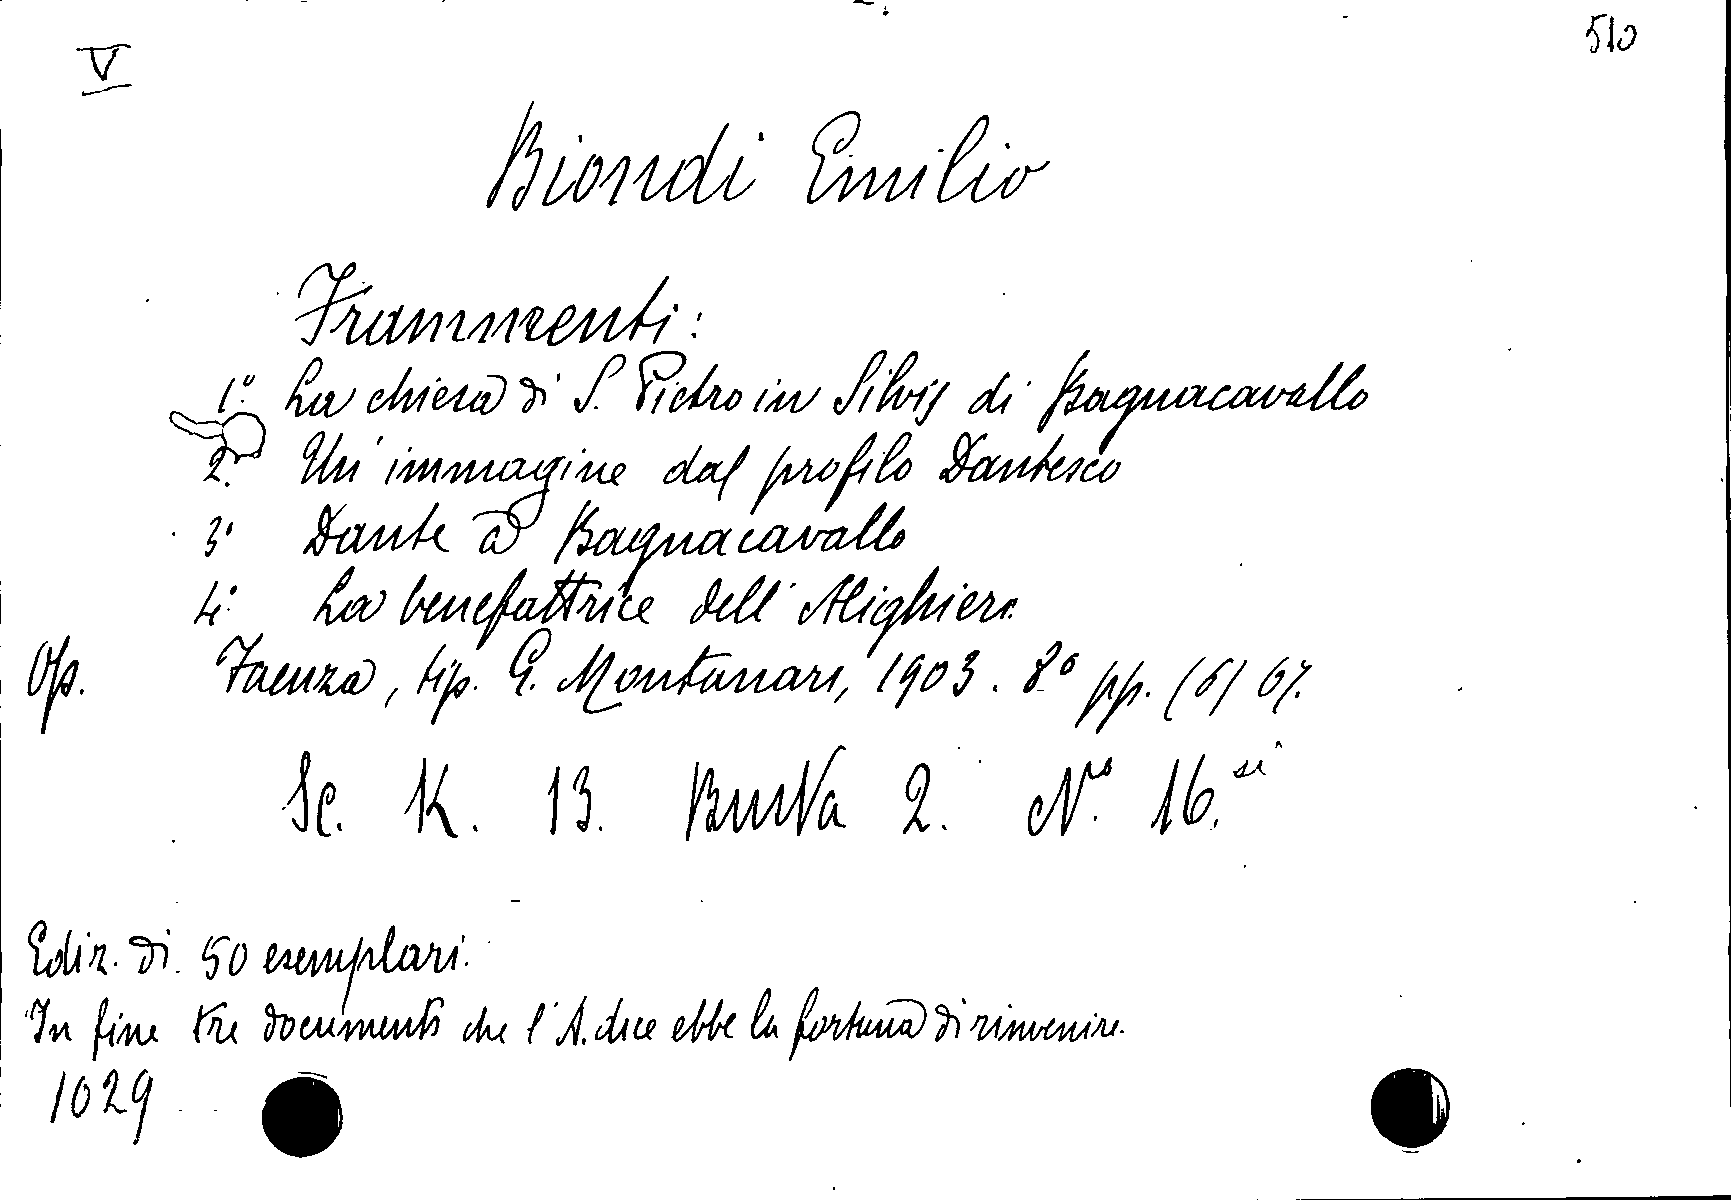 V
510
Biondi Emilio
Frammenti:
1.° La chiesa di S. Pietro in Silvis di Bagnacavallo
2.° Un' immagine dal profilo Dantesco
3° Dante a Bagnacavallo
4.° La benefattrice dell' Alighieri.
Op. Faenza, tip. G. Montanari, 1903. 8° pp. (6) 67.
Sc. K. 13. Busta 2. N.° 16.
Ediz. di 50 esemplari.
In fine tre documenti che l'A. dice ebbe la fortuna di rinvenire.
1029